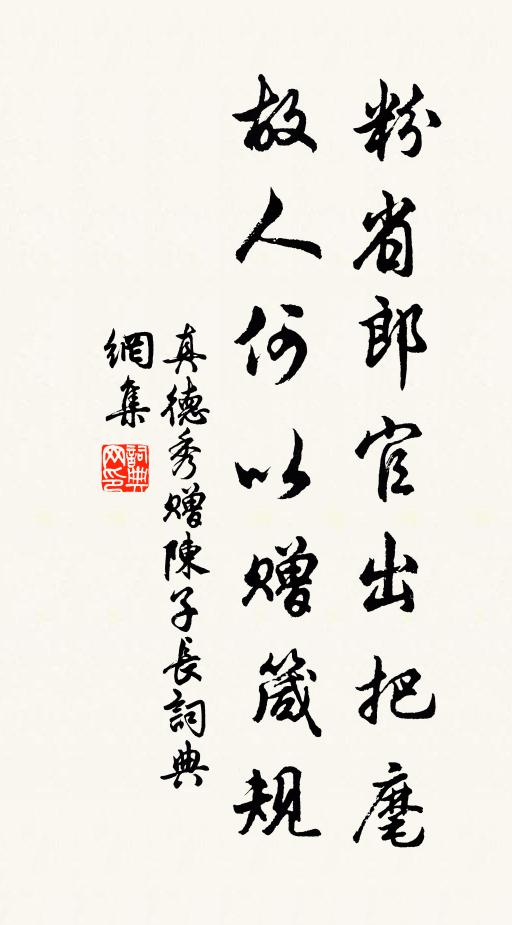 粉省郎官出把麾
故人何以赠箴規
真德秀赠陳子長詞典
網集
詞典
网印